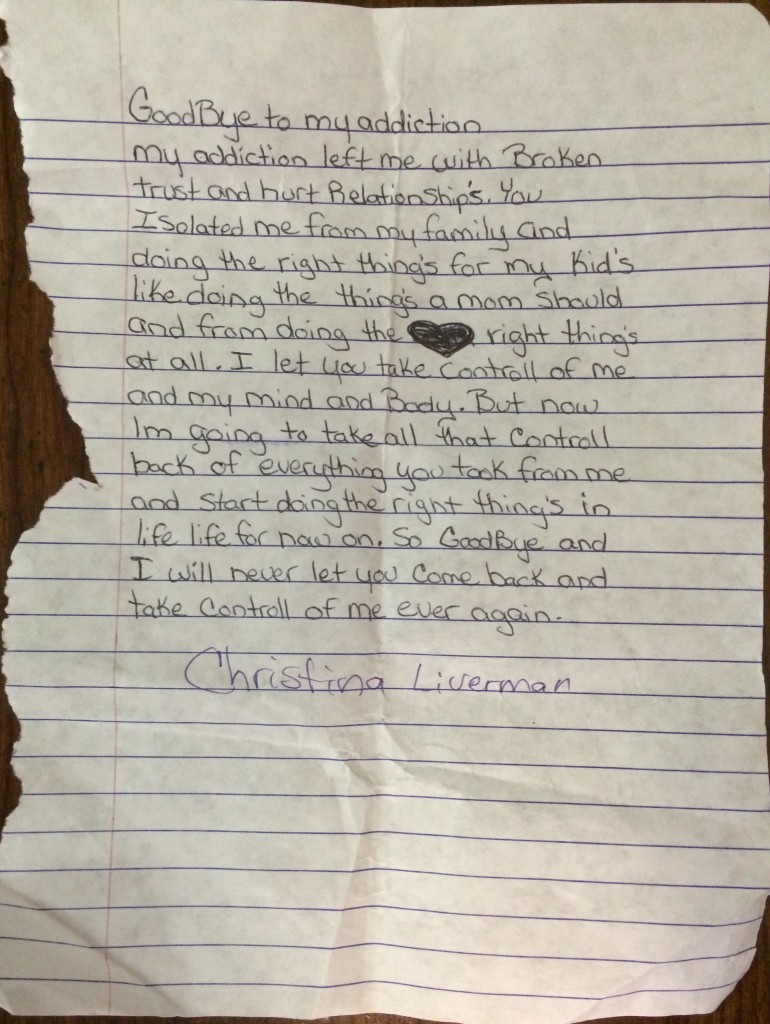 GoodBye to my addiction
my addiction left me with Broken
trust and hurt Relationship's. You
Isolated me from my family and
doing the right thing's for my Kid's
like doing the thing's a mom Should
and from doing the right thing's
at all. I let you take Controll of me
and my mind and Body. But now
Im going to take all that Controll
back of everything you took from me
and Start doing the right thing's in
life life for now on. So GoodBye and
I will never let you Come back and
take Controll of me ever again.
Christina Liverman